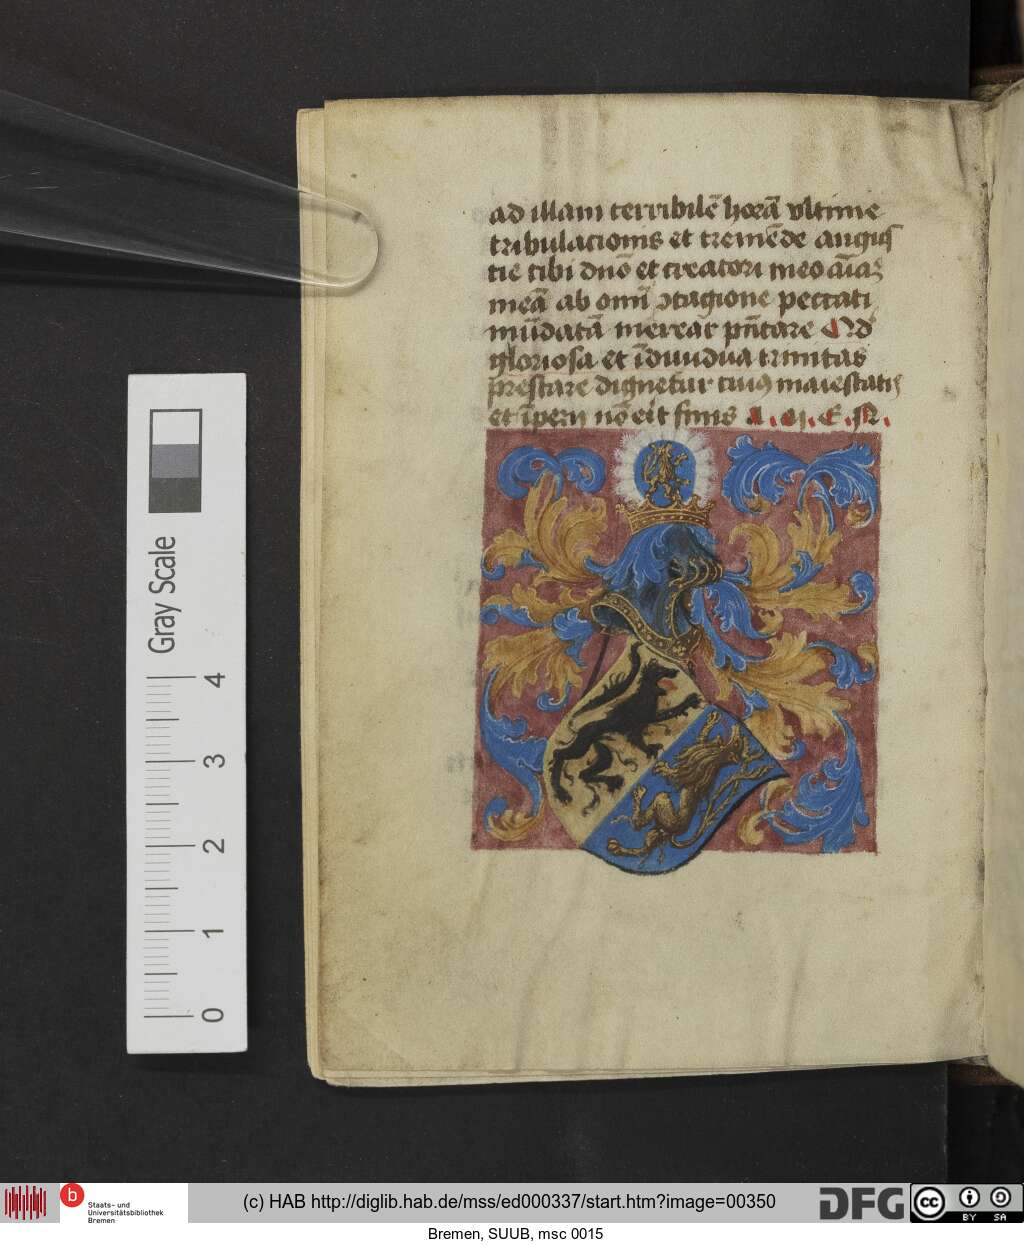 ad illam terribilē horā vltime
tribulacionis et tremēde angus
tie tibi dnō et creatori meo aīaz
meā ab omī ꝯtagione peccati
mūdatā merear pñtare Qd
gloriosa et īdiuidua trinitas
prestare dignetur cuiꝰ maiestatis
et īperij nō erit finis A. M. E. N.
Gray Scale
4
3
2
1
0
b
Staats- und
Universitätsbibliothek
Bremen
(c) HAB http://diglib.hab.de/mss/ed000337/start.htm?image=00350
DFG
cc
BY SA
Bremen, SUUB, msc 0015